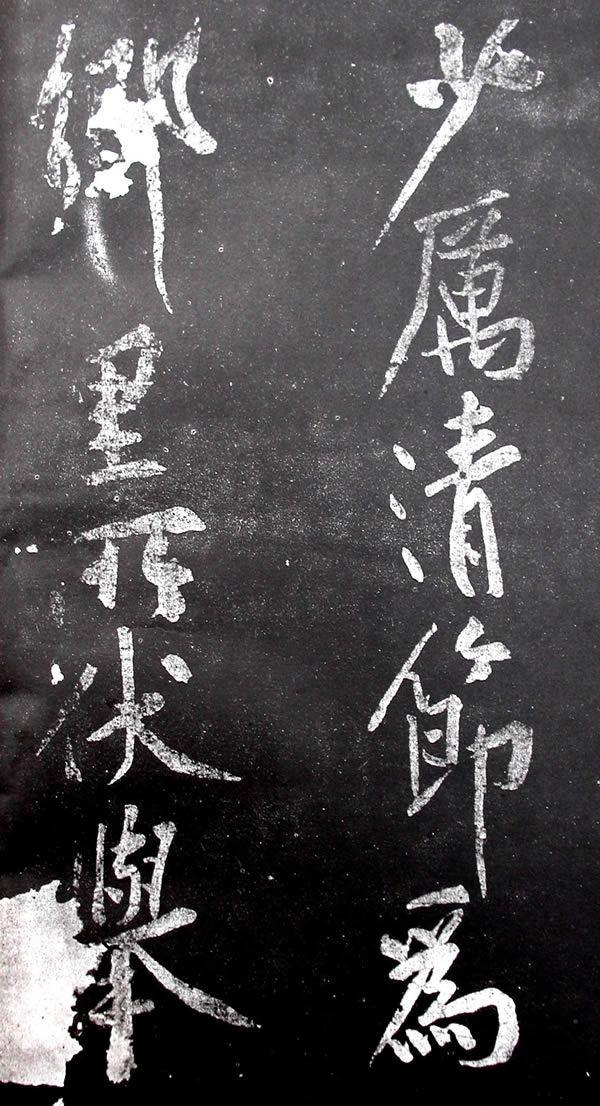 少厲清節爲
鄉里所伏舉